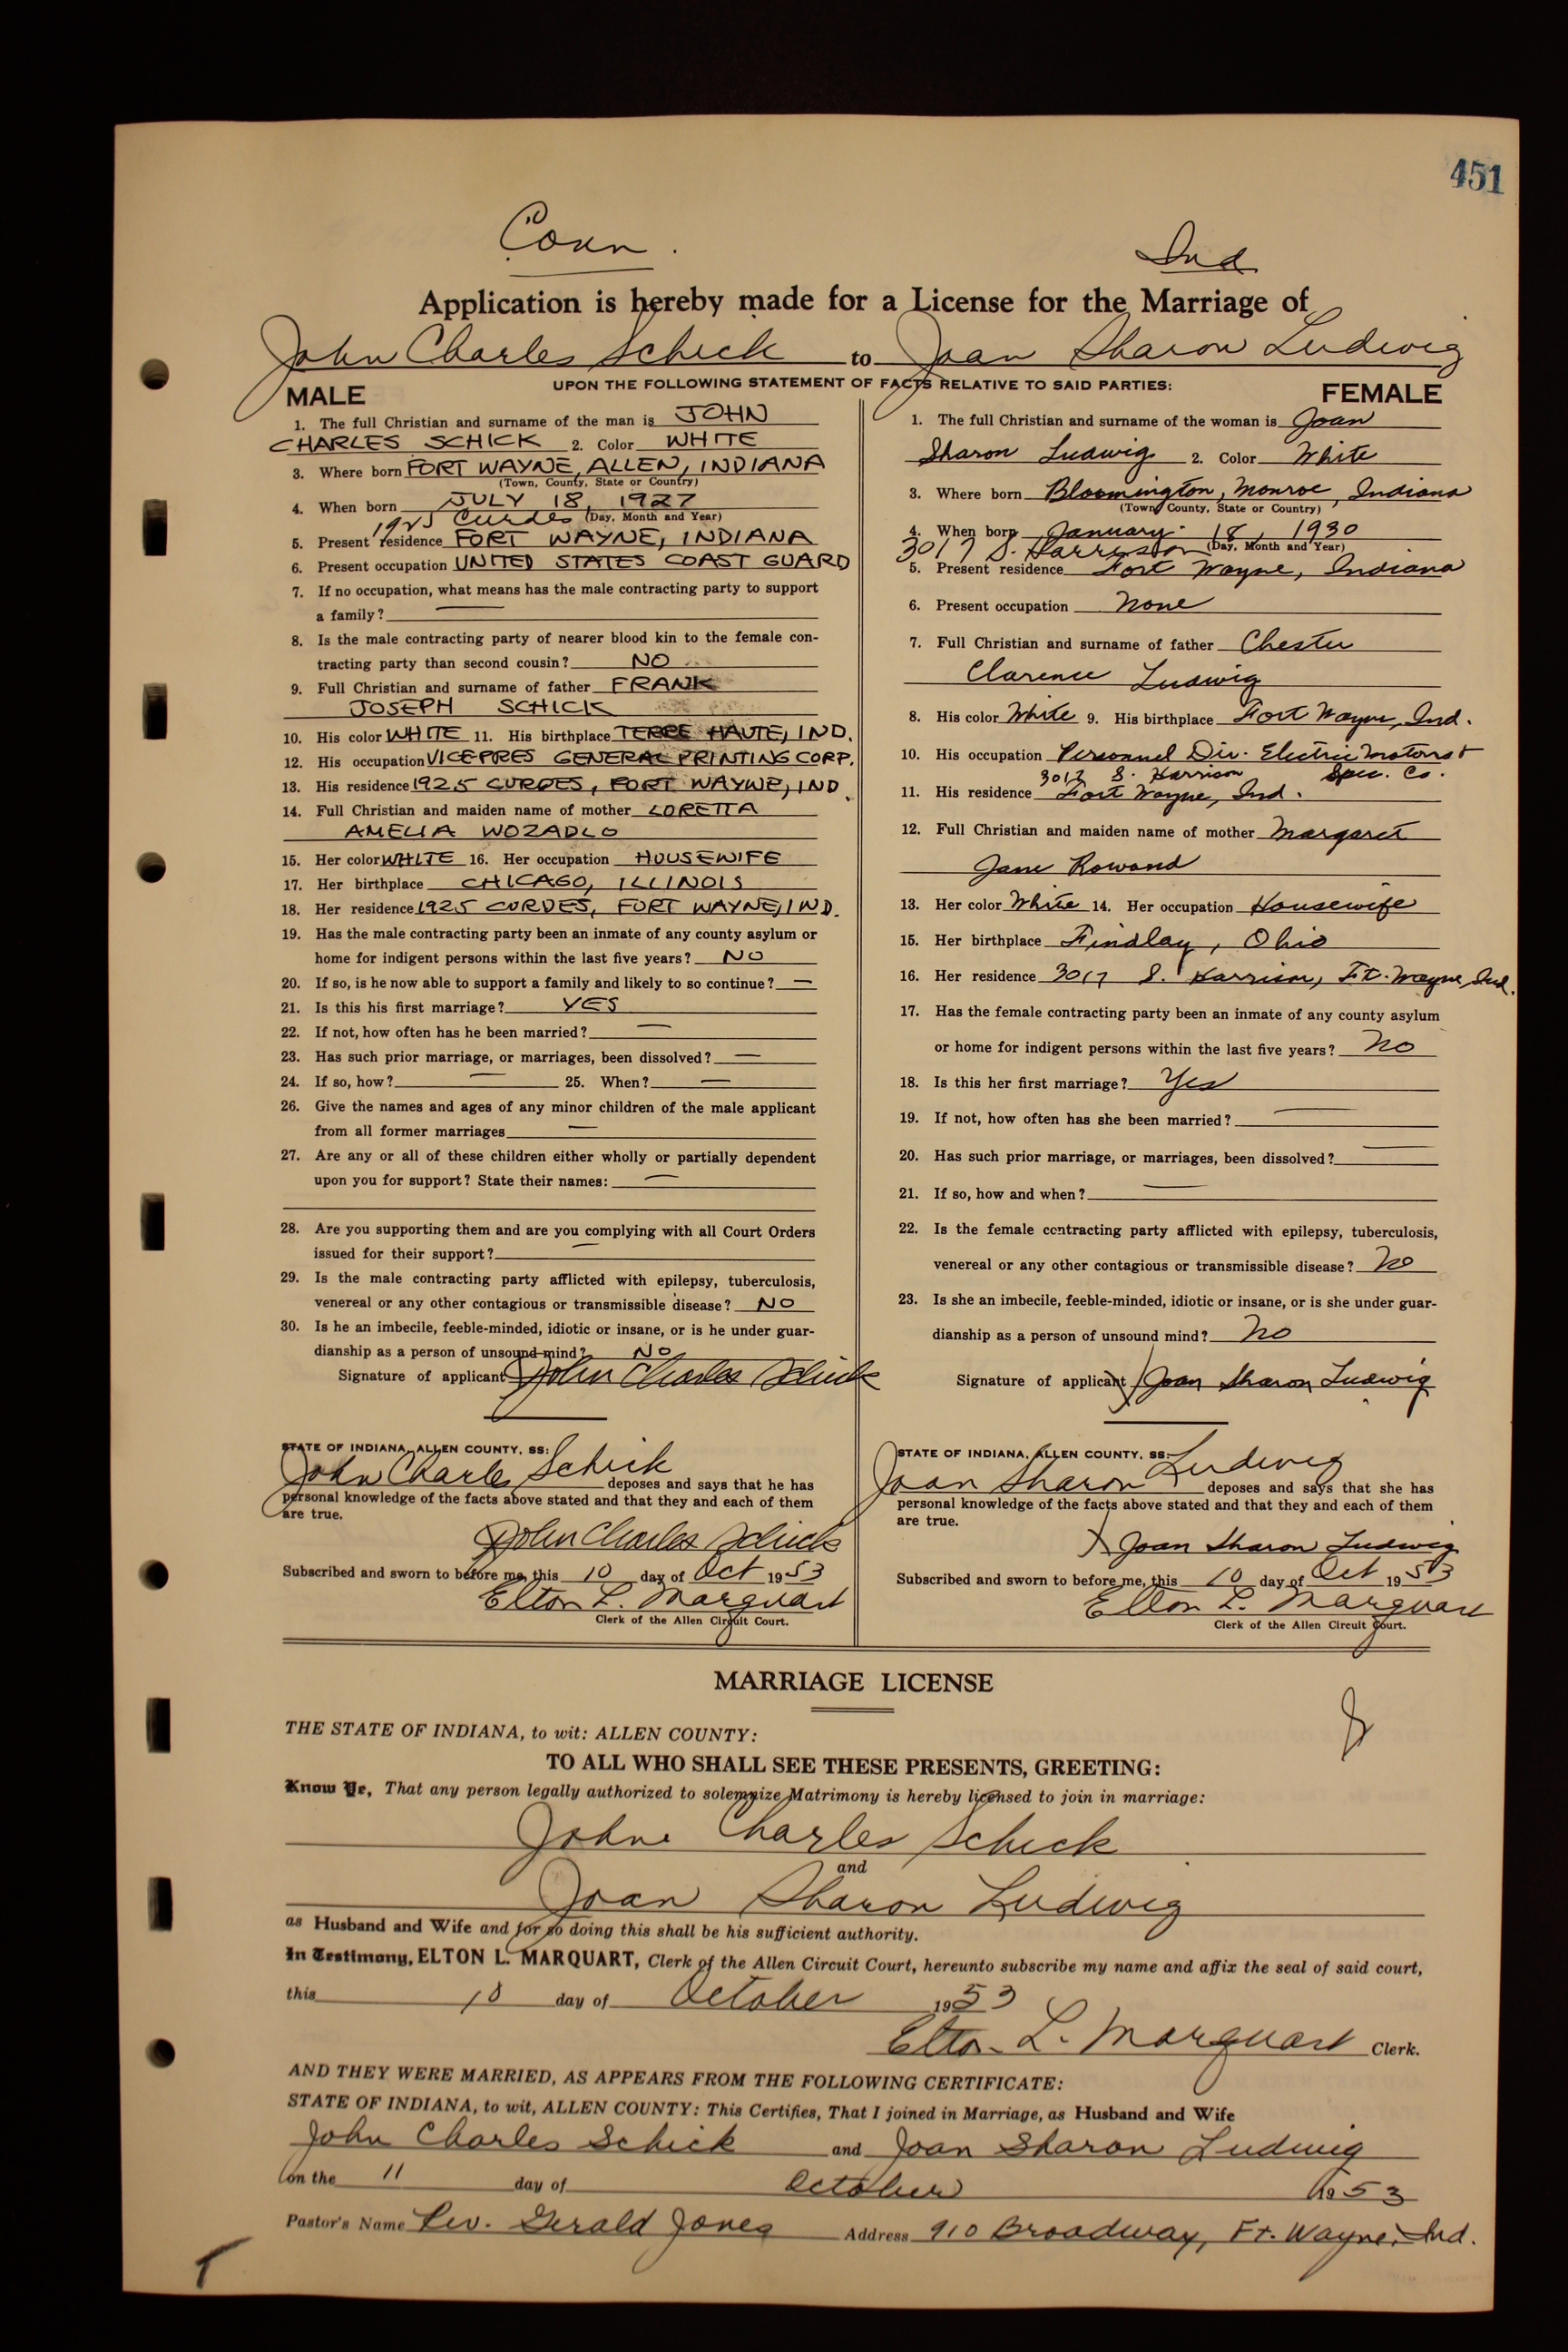 451
Conn.
Ind
Application is hereby made for a License for the Marriage of
John Charles Schick to Joan Sharon Ludwig
UPON THE FOLLOWING STATEMENT OF FACTS RELATIVE TO SAID PARTIES:
MALE
1. The full Christian and surname of the man is JOHN
CHARLES SCHICK 2. Color WHITE
3. Where born FORT WAYNE, ALLEN, INDIANA
(Town, County, State or Country)
4. When born JULY 18, 1927
1925 Curdes (Day, Month and Year)
5. Present residence FORT WAYNE, INDIANA
6. Present occupation UNITED STATES COAST GUARD
7. If no occupation, what means has the male contracting party to support
a family? —
8. Is the male contracting party of nearer blood kin to the female con-
tracting party than second cousin? NO
9. Full Christian and surname of father FRANK
JOSEPH SCHICK
10. His color WHITE 11. His birthplace TERRE HAUTE, IND.
12. His occupation VICE PRES GENERAL PRINTING CORP.
13. His residence 1925 CURDES, FORT WAYNE, IND.
14. Full Christian and maiden name of mother LORETTA
AMELIA WOZADLO
15. Her color WHITE 16. Her occupation HOUSEWIFE
17. Her birthplace CHICAGO, ILLINOIS
18. Her residence 1925 CURDES, FORT WAYNE, IND.
19. Has the male contracting party been an inmate of any county asylum or
home for indigent persons within the last five years? NO
20. If so, is he now able to support a family and likely to so continue? —
21. Is this his first marriage? YES
22. If not, how often has he been married? —
23. Has such prior marriage, or marriages, been dissolved? —
24. If so, how? — 25. When? —
26. Give the names and ages of any minor children of the male applicant
from all former marriages —
27. Are any or all of these children either wholly or partially dependent
upon you for support? State their names: —
28. Are you supporting them and are you complying with all Court Orders
issued for their support? —
29. Is the male contracting party afflicted with epilepsy, tuberculosis,
venereal or any other contagious or transmissible disease? NO
30. Is he an imbecile, feeble-minded, idiotic or insane, or is he under guar-
dianship as a person of unsound mind? NO
Signature of applicant John Charles Schick
STATE OF INDIANA, ALLEN COUNTY, SS:
John Charles Schick deposes and says that he has
personal knowledge of the facts above stated and that they and each of them
are true.
John Charles Schick
Subscribed and sworn to before me, this 10 day of Oct 1953
Elton L. Marquart
Clerk of the Allen Circuit Court.
FEMALE
1. The full Christian and surname of the woman is Joan
Sharon Ludwig 2. Color White
3. Where born Bloomington, Monroe, Indiana
(Town, County, State or Country)
4. When born January 18, 1930
3017 S. Harrison (Day, Month and Year)
5. Present residence Fort Wayne, Indiana
6. Present occupation None
7. Full Christian and surname of father Chester
Clarence Ludwig
8. His color White 9. His birthplace Fort Wayne, Ind.
10. His occupation Personnel Div. Electric Motors &
3017 S. Harrison Spec. Co.
11. His residence Fort Wayne, Ind.
12. Full Christian and maiden name of mother Margaret
Jane Rowand
13. Her color White 14. Her occupation Housewife
15. Her birthplace Findlay, Ohio
16. Her residence 3017 S. Harrison, Ft. Wayne, Ind.
17. Has the female contracting party been an inmate of any county asylum
or home for indigent persons within the last five years? No
18. Is this her first marriage? Yes
19. If not, how often has she been married? —
20. Has such prior marriage, or marriages, been dissolved? —
21. If so, how and when? —
22. Is the female contracting party afflicted with epilepsy, tuberculosis,
venereal or any other contagious or transmissible disease? No
23. Is she an imbecile, feeble-minded, idiotic or insane, or is she under guar-
dianship as a person of unsound mind? No
Signature of applicant Joan Sharon Ludwig
STATE OF INDIANA, ALLEN COUNTY, SS:
Joan Sharon Ludwig deposes and says that she has
personal knowledge of the facts above stated and that they and each of them
are true.
Joan Sharon Ludwig
Subscribed and sworn to before me, this 10 day of Oct 1953
Elton L. Marquart
Clerk of the Allen Circuit Court.
MARRIAGE LICENSE
THE STATE OF INDIANA, to wit: ALLEN COUNTY:
TO ALL WHO SHALL SEE THESE PRESENTS, GREETING:
Know Ye, That any person legally authorized to solemnize Matrimony is hereby licensed to join in marriage:
John Charles Schick
and
Joan Sharon Ludwig
as Husband and Wife and for so doing this shall be his sufficient authority.
In Testimony, ELTON L. MARQUART, Clerk of the Allen Circuit Court, hereunto subscribe my name and affix the seal of said court,
this 10 day of October 1953
Elton L. Marquart Clerk.
AND THEY WERE MARRIED, AS APPEARS FROM THE FOLLOWING CERTIFICATE:
STATE OF INDIANA, to wit, ALLEN COUNTY: This Certifies, That I joined in Marriage, as Husband and Wife
John Charles Schick and Joan Sharon Ludwig
on the 11 day of October 1953
Pastor's Name Rev. Gerald Jones Address 910 Broadway, Ft. Wayne, Ind.